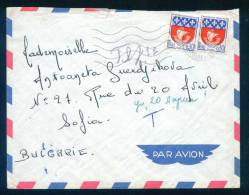 Mademoiselle
Antoaneta Guerdjikova
N° 27. Rue du 20 Avril
Sofia
T
BULGARIE
PAR AVION